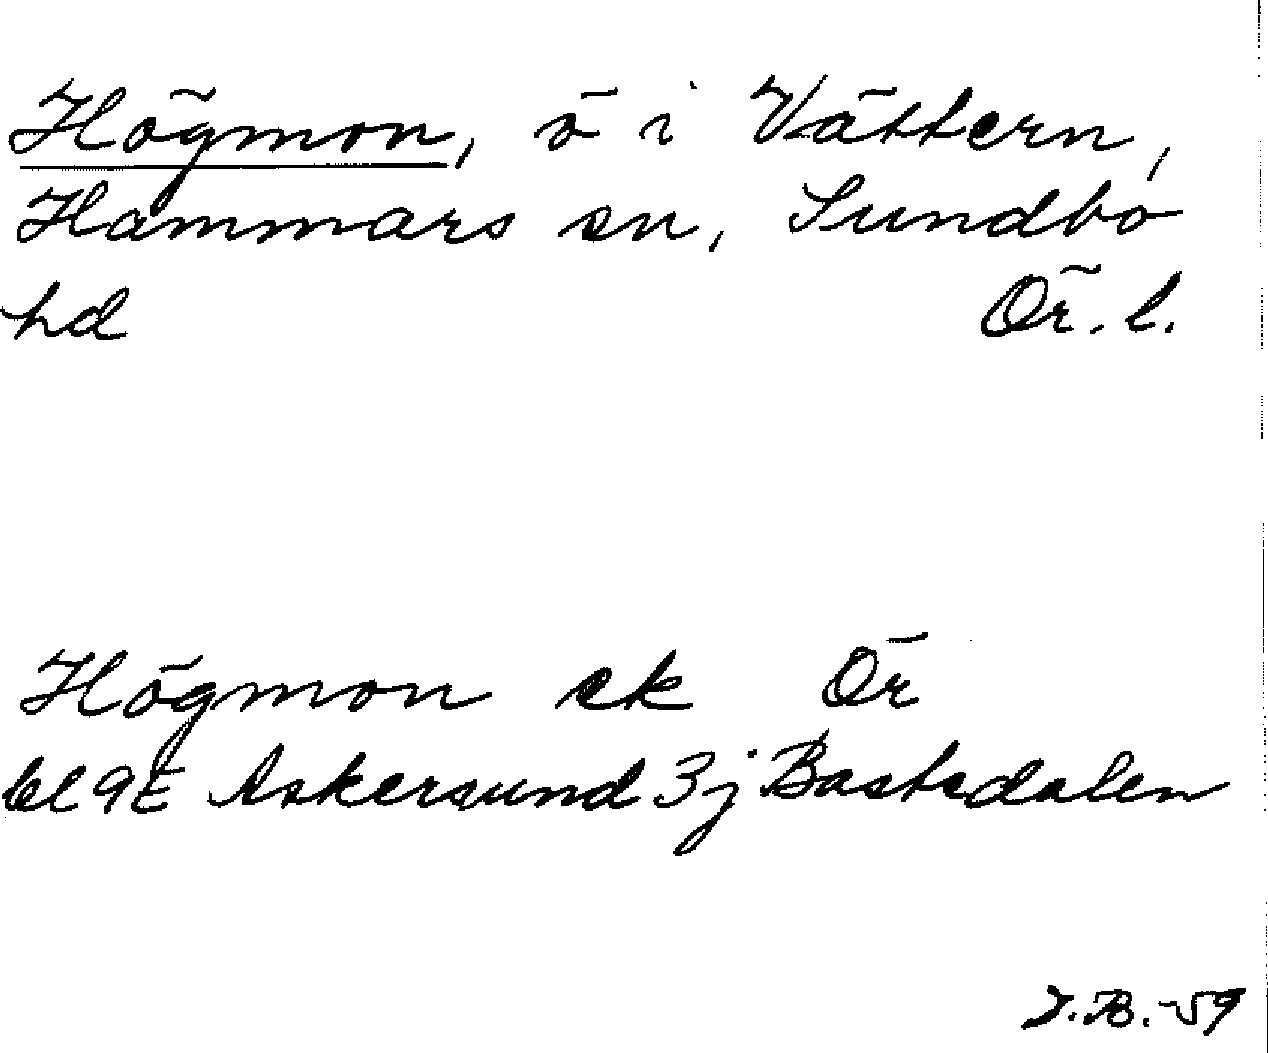 Högmon, ö i Vättern,
Hammars sn, Sundbo
hd Ör. l.
Högmon ek Ör
bl 9E Askersund 3j Bastedalen
J.B.-59